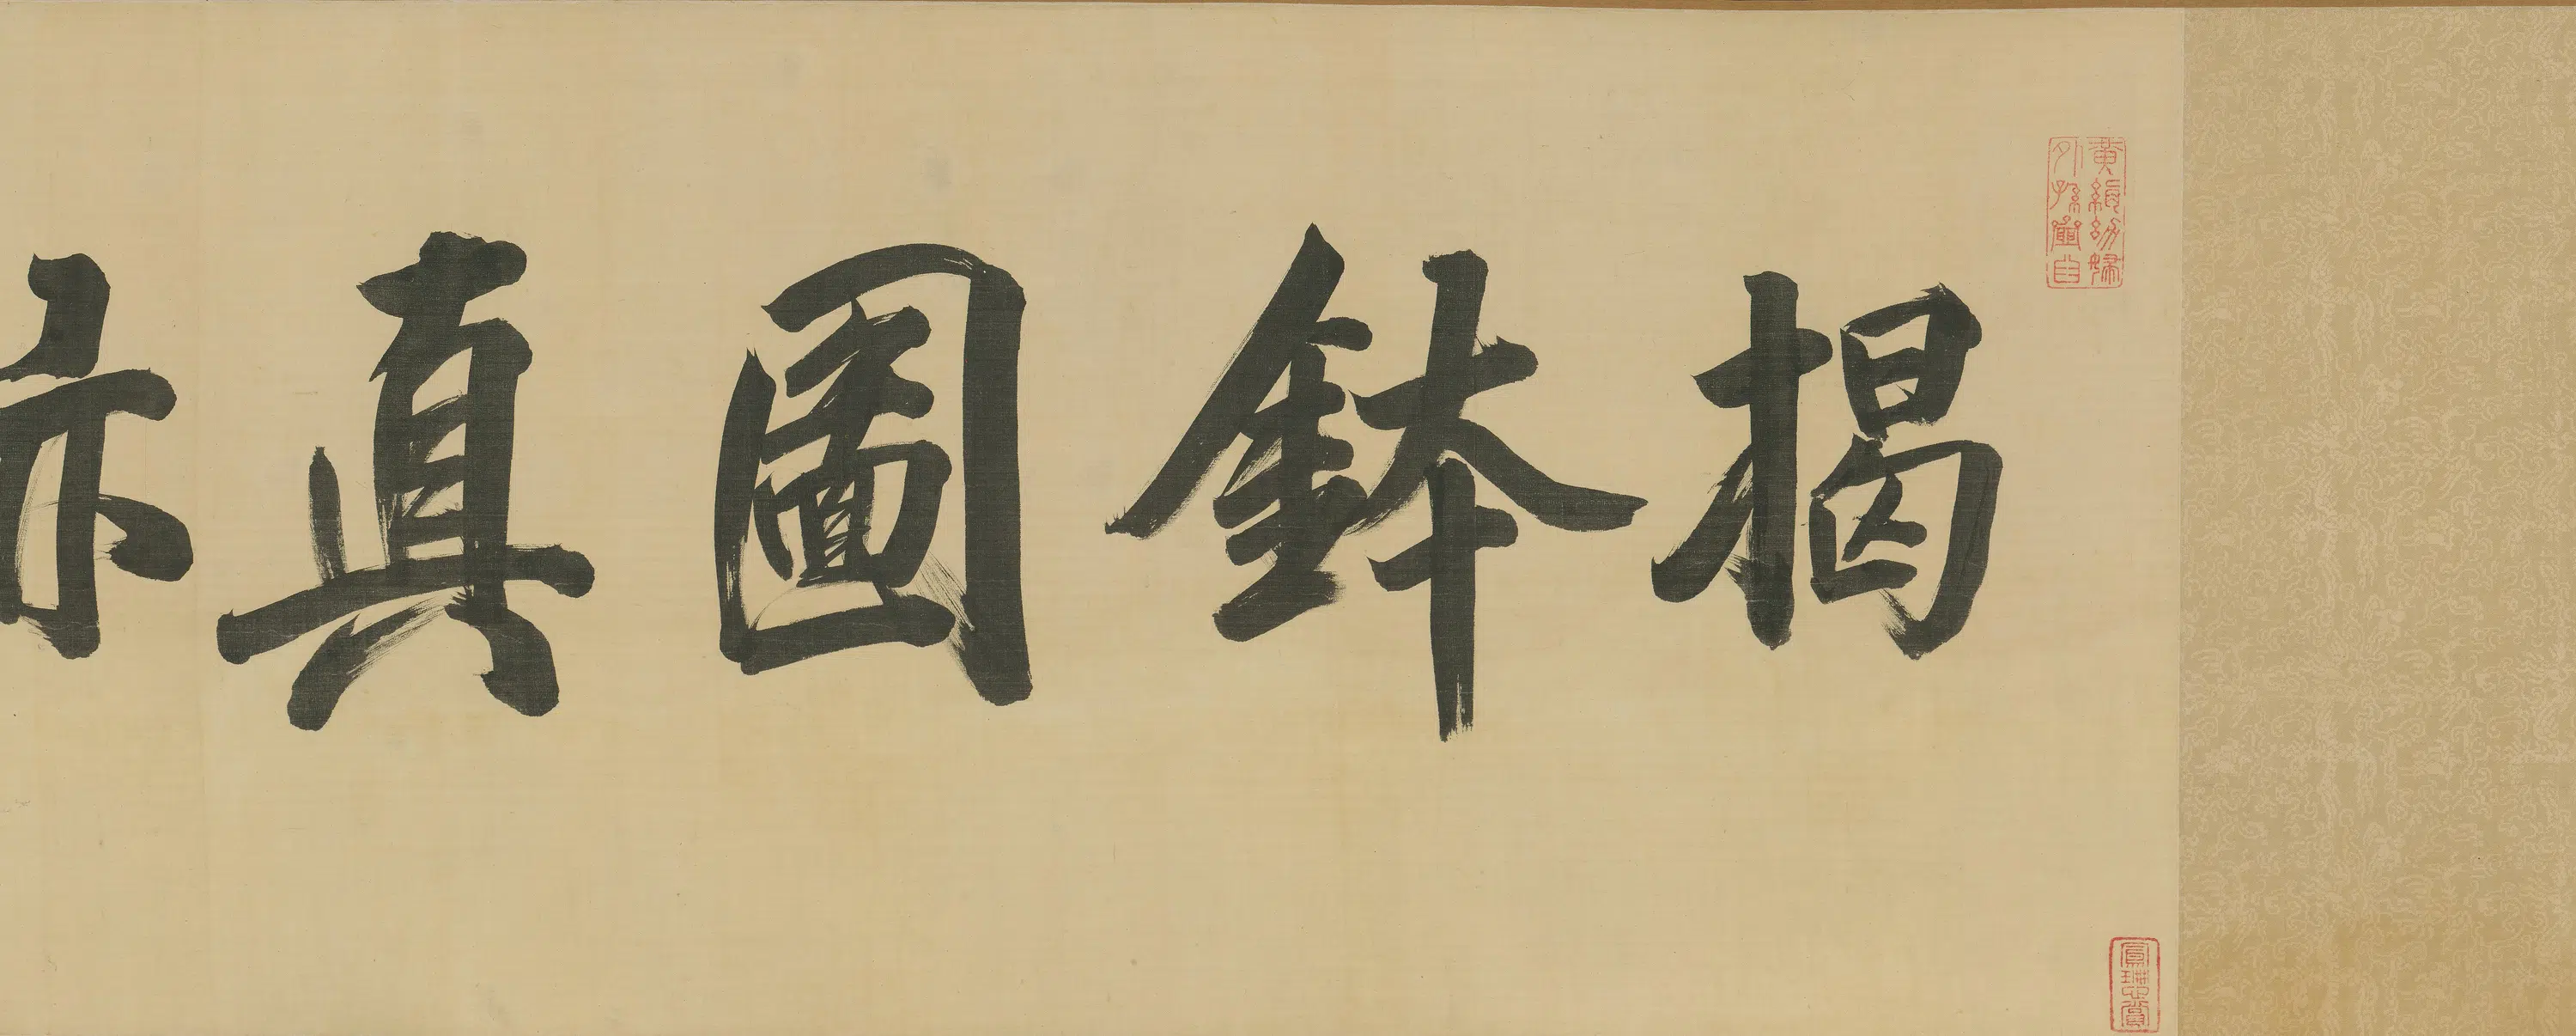 黃絹幼婦
外孫齏臼
揭鉢圖真